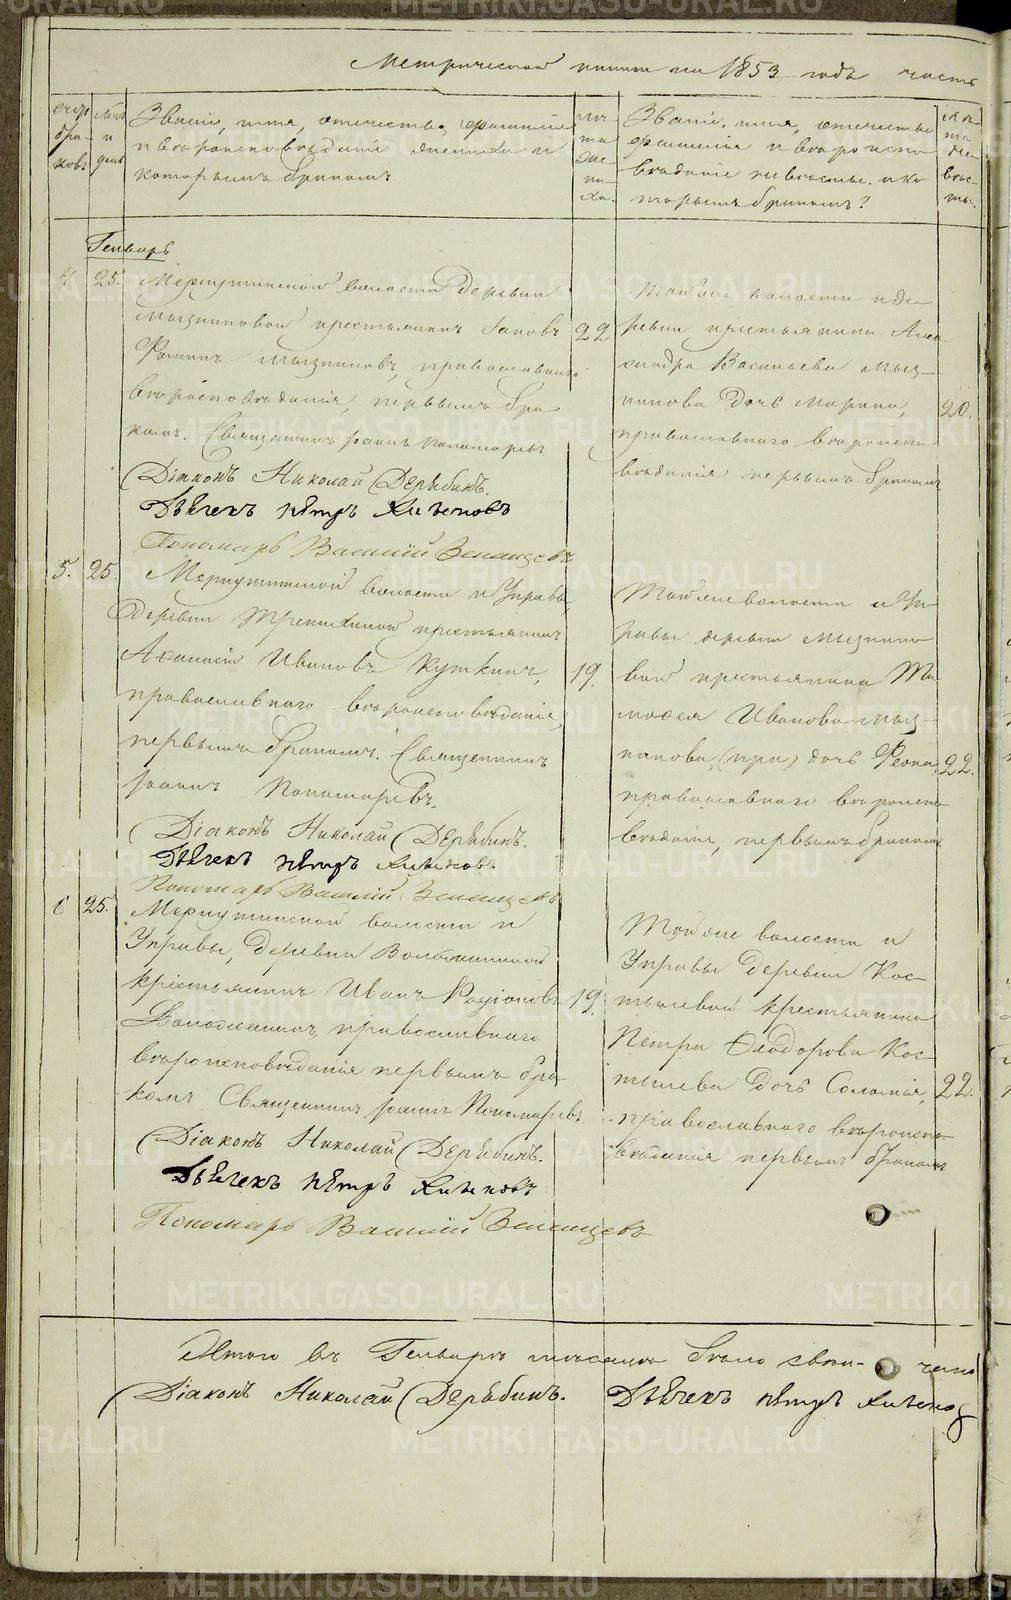 Метрической книги на 1853 годъ часть
счетъ браковъ
М-цъ и день
Званіе, имя, отчество, фамилія
и вѣроисповѣданіе жениха и
которымъ бракомъ
лѣта жениха.
Званіе, имя, отчество
фамилія и вѣроиспо
вѣданіе невѣсты. и ко
торымъ бракомъ?
Лѣта невѣсты.
Генварь
4 25. Меркушинской волости деревни
Мызниковой крестьянинъ Іаковъ 22
Фоминъ Мызниковъ, православнаго
вѣроисповѣданія, первымъ бра
комъ. Священникъ Іоаннъ Пономаревъ
Діаконъ Николай Дерябинъ.
Дьячекъ Пётръ
Пономарь Василій
Тойже волости и де
ревни крестьянина Алек
сандра Васильева Мыз-
никова дочь Марина, 20.
православнаго вѣроиспо
вѣданія первымъ бракомъ
5. 25. Меркушинской волости и Управы
Деревни крестьянинъ
Аѳанасій Ивановъ Куткинъ, 19.
православнаго вѣроисповѣданія,
первымъ бракомъ. Священникъ
Іоаннъ Пономаревъ.
Діаконъ Николай Дерябинъ.
Дьячекъ Пётръ
Пономарь Василій
Тойже волости и Уп-
равы деревни Мызнико
вой крестьянина Ти
мофея Иванова Мыз-
никова, дочь Ѳеона, 22.
православнаго вѣроиспо
вѣданія, первымъ бракомъ
6 25. Меркушинской волости и
Управы, деревни
крестьянинъ Иванъ Родіоновъ 19.
православнаго
вѣроисповѣданія первымъ бра
комъ Священникъ Іоаннъ Пономаревъ
Діаконъ Николай Дерябинъ.
Дьячекъ Пётръ
Пономарь Василій
Тойже волости и
Управы деревни Кос-
тылевой крестьянина
Петра Ѳеодорова Кос-
тылева дочь Соломія, 22.
православнаго вѣроиспо
вѣданія первымъ бракомъ
Итого въ Генварѣ мѣсяцѣ было
Діаконъ Николай Дерябинъ. Дьячекъ Пётръ
METRIKI.GASO-URAL.RU